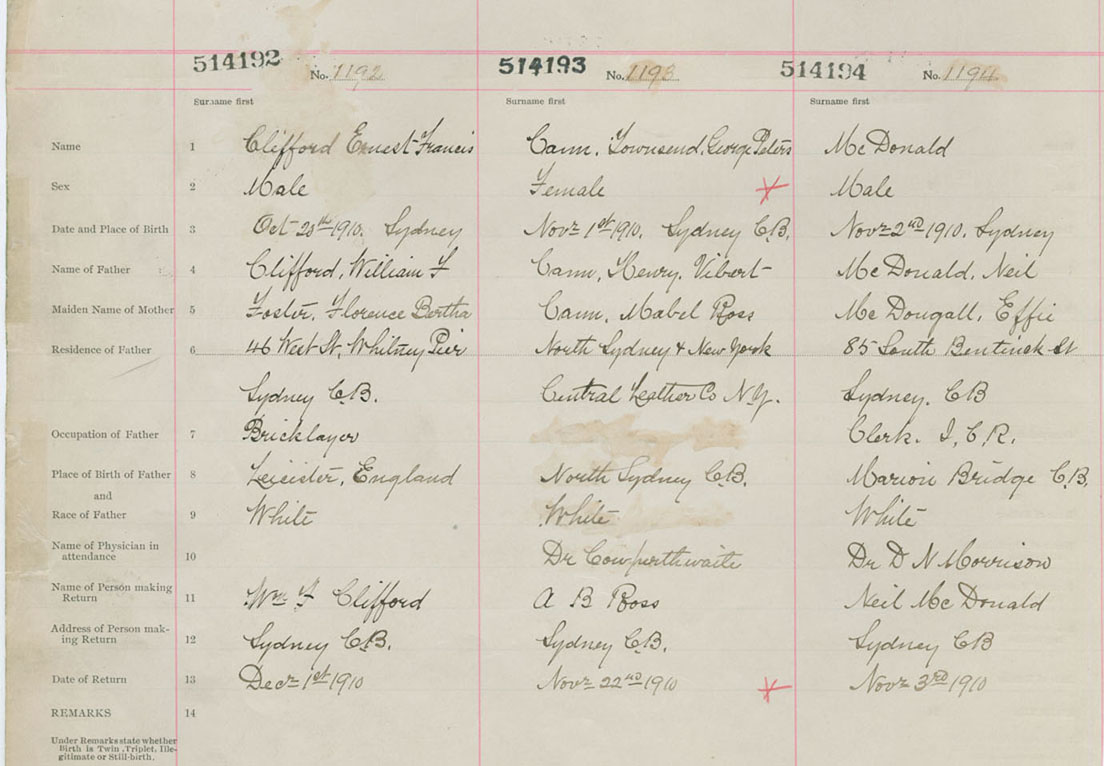 514192 No. 1192 514193 No. 1193 514194 No. 1194
Surname first Surname first Surname first
Name 1 Clifford Ernest Francis Cann, Townsend, George Peters McDonald
Sex 2 Male Female Male
Date and Place of Birth 3 Oct 20th 1910. Sydney Novr 1st 1910. Sydney C.B. Novr 2nd 1910. Sydney
Name of Father 4 Clifford, William F Cann, Henry. Vibert McDonald, Neil
Maiden Name of Mother 5 Foster, Florence Bertha Cann, Mabel Ross McDougall, Effie
Residence of Father 6 46 West St, Whitney Pier North Sydney & New York 85 South Bentinck St
Sydney C.B. Central Leather Co N.Y. Sydney. CB
Occupation of Father 7 Bricklayer Clerk. I.C.R.
Place of Birth of Father 8 Leicister, England North Sydney C.B. Marion Bridge C.B.
and
Race of Father 9 White White White
Name of Physician in attendance 10 Dr Cowperthwaite Dr D N Morrison
Name of Person making Return 11 Wm F Clifford A B Ross Neil McDonald
Address of Person mak-ing Return 12 Sydney C.B. Sydney C.B. Sydney CB
Date of Return 13 Decr 1st 1910 Novr 22nd 1910 Novr 3rd 1910
REMARKS 14
Under Remarks state whether
Birth is Twin, Triplet, Ille-
gitimate or Still-birth.